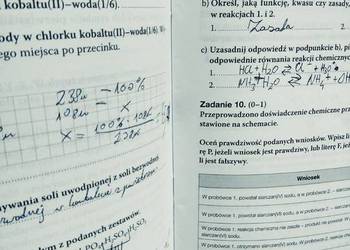 kobaltu(II)–woda(1/6).
ody w chlorku kobaltu(II)–woda(1/6)
ego miejsca po przecinku.
238u — 100%
108u — x
x = 100% · 108u
238u
ywania soli uwodnionej z soli bezwodnej
z podanych zestawów.
b) Określ, jaką funkcję, kwasu czy zasady,
w reakcjach 1. i 2.
1. Zasada 2.
c) Uzasadnij odpowiedź w podpunkcie b), pi
odpowiednie równania reakcji chemicznyc
1. HCl + H₂O ⇄ Cl⁻ + H₃O⁺
2. NH₃ + H₂O ⇄ NH₄⁺ + OH
Zadanie 10. (0–1)
Przeprowadzono doświadczenie chemiczne prz
stawione na schemacie.
Oceń prawdziwość podanych wniosków. Wpisz li
rę P, jeżeli wniosek jest prawdziwy, lub literę F, jeż
li jest fałszywy.
Wniosek
W probówce 1. powstał siarczan(VI) sodu, a w probówce 2. – siarczan
W probówce 1. powstał siarczan(IV) sodu, a w probówce 2. –
siarczan(VI) sodu.
W probówce 1. reakcja chemiczna nie zaszła – produkt nie powstał. W
W probówce 1. otrzymano siarczan(IV) sodu. W probówce